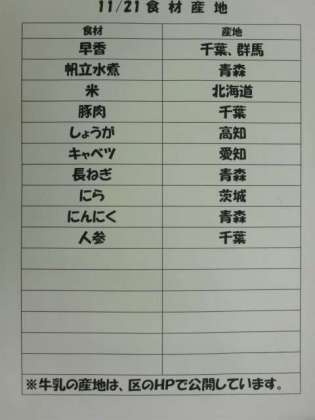 11/21食材産地
食材 産地
早香 千葉、群馬
帆立水煮 青森
米 北海道
豚肉 千葉
しょうが 高知
キャベツ 愛知
長ねぎ 青森
にら 茨城
にんにく 青森
人参 千葉
※牛乳の産地は、区のHPで公開しています。